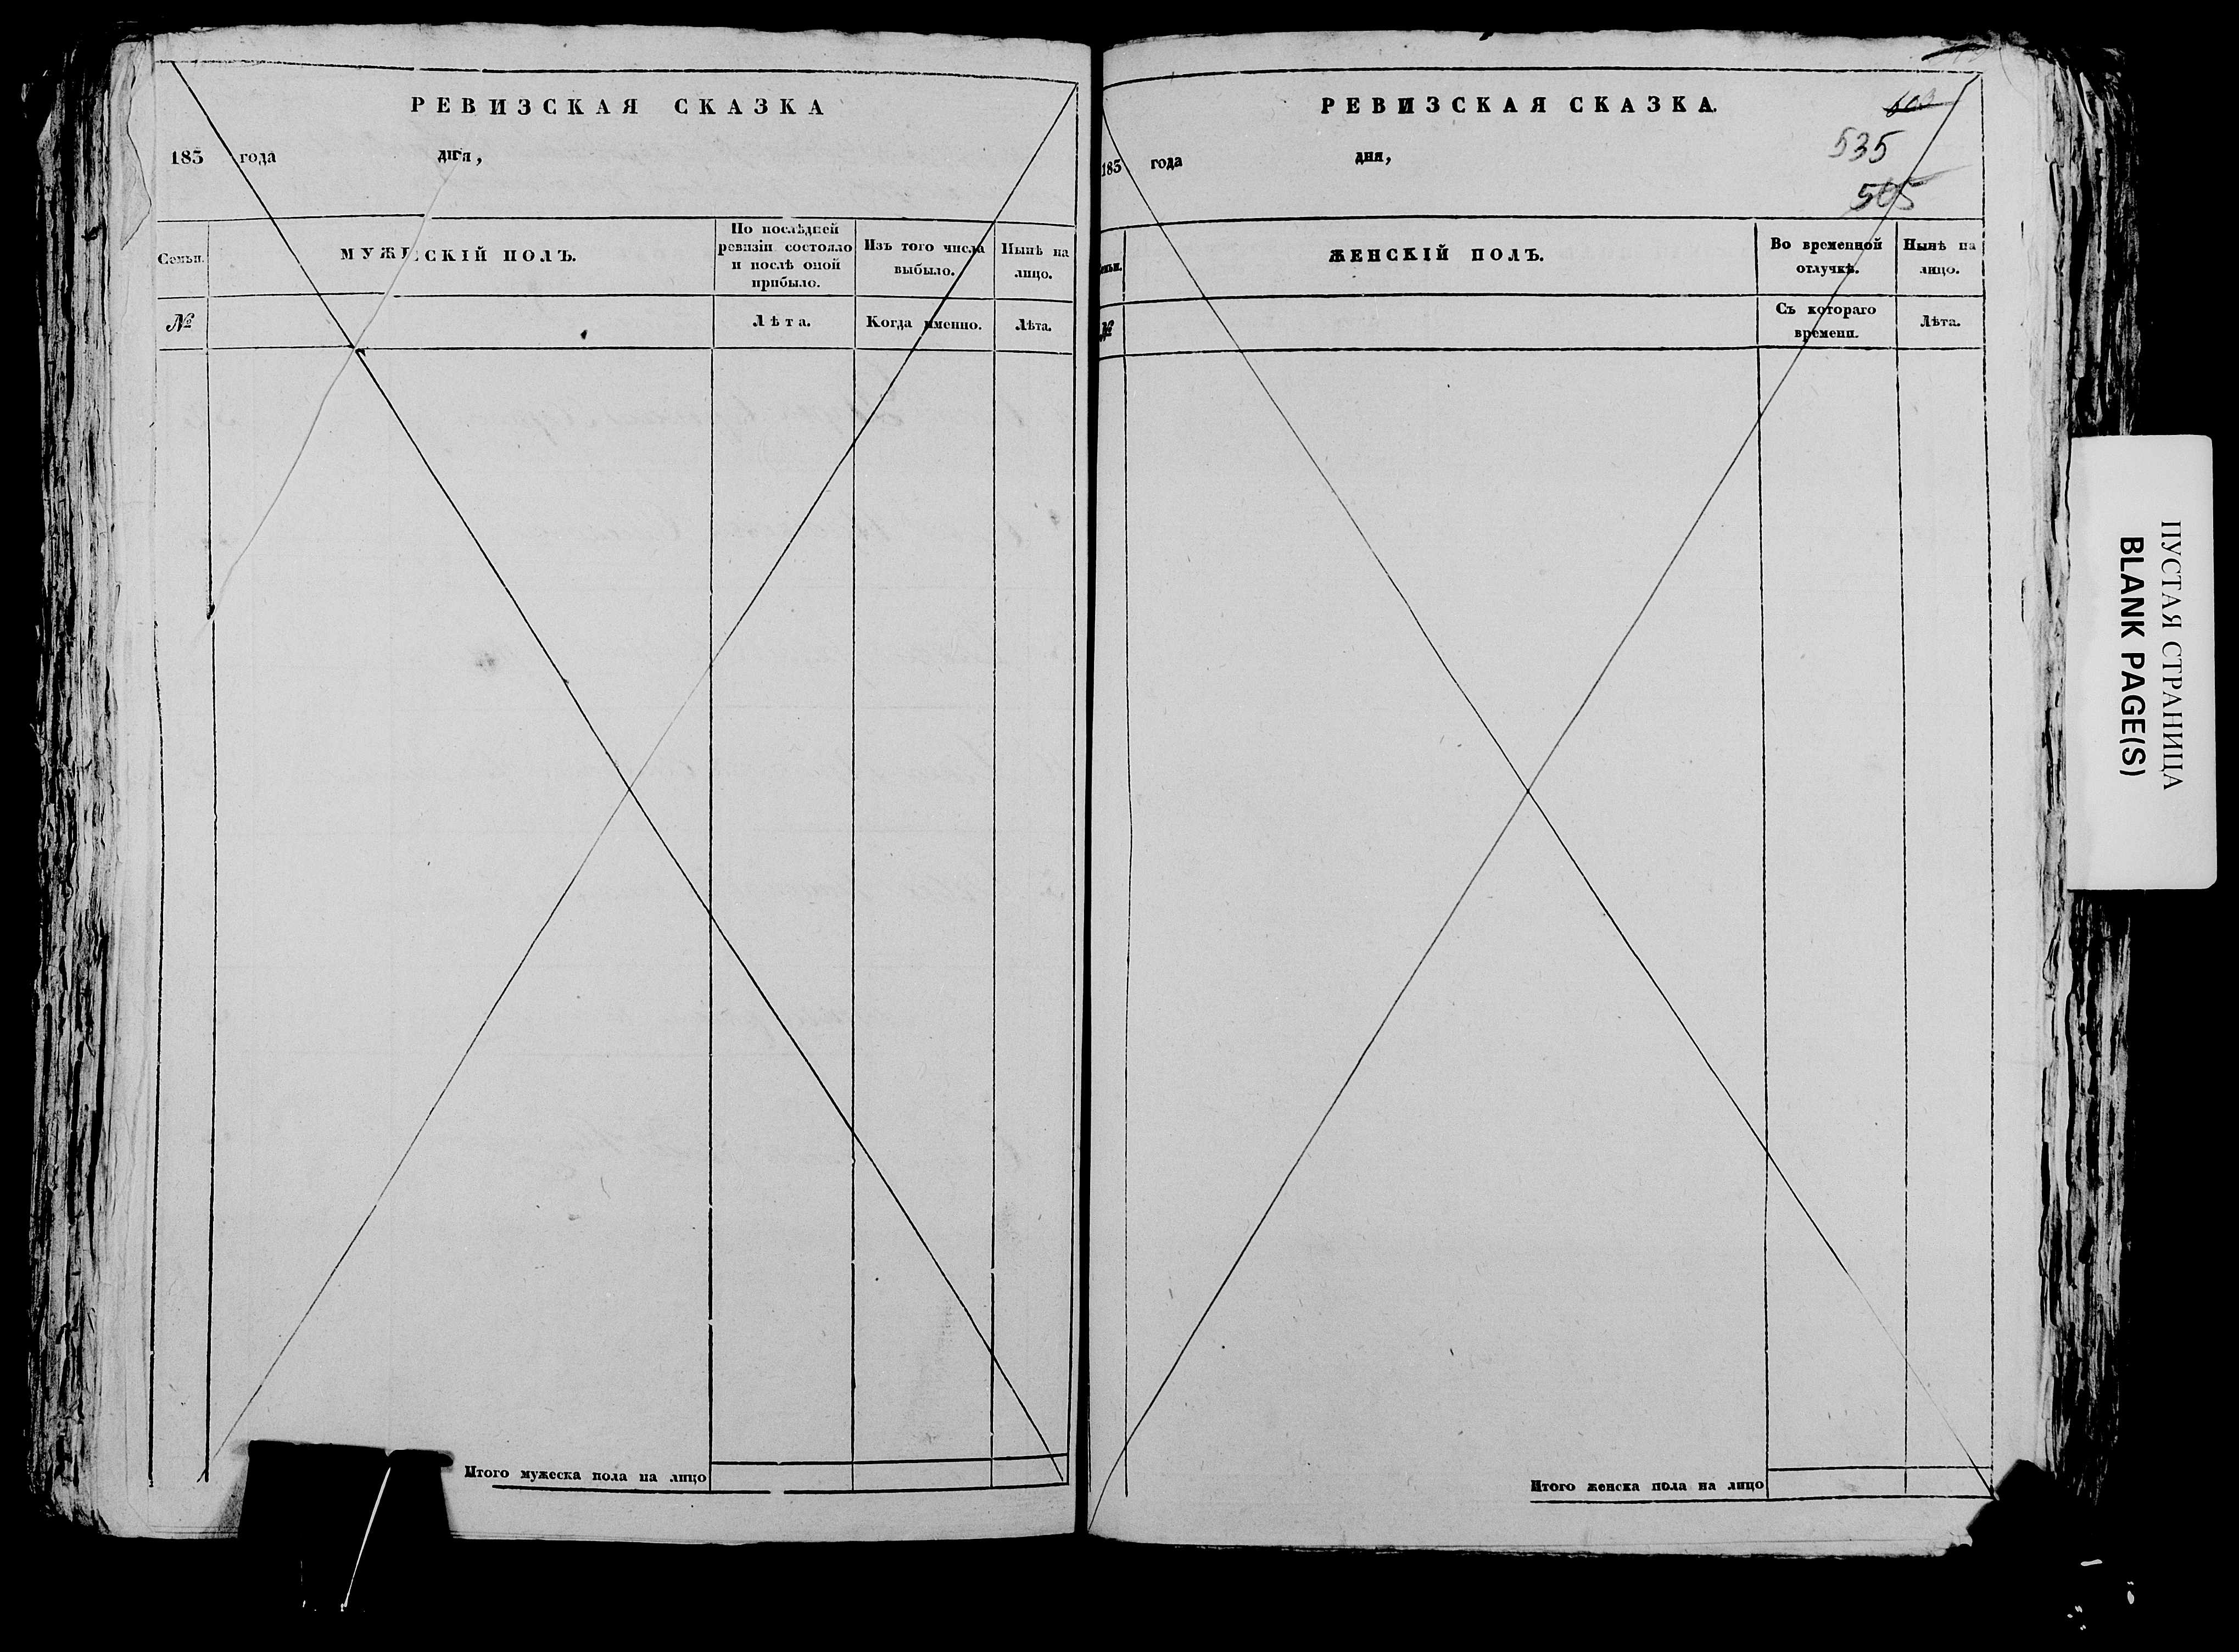 РЕВИЗСКАЯ СКАЗКА
185 года дня,
Семьи.
МУЖЕСКІЙ ПОЛЪ.
По послѣдней
ревизіи состояло
и послѣ оной
прибыло.
Изъ того числа
выбыло.
Нынѣ на
лицо.
№
Лѣта.
Когда именно.
Лѣта.
Итого мужеска пола на лицо
РЕВИЗСКАЯ СКАЗКА.
603
185 года дня,
535
505
ЖЕНСКІЙ ПОЛЪ.
Во временной
отлучкѣ.
Нынѣ на
лицо.
№
Съ котораго
времени.
Лѣта.
Итого женска пола на лицо
ПУСТАЯ СТРАНИЦА
BLANK PAGE(S)